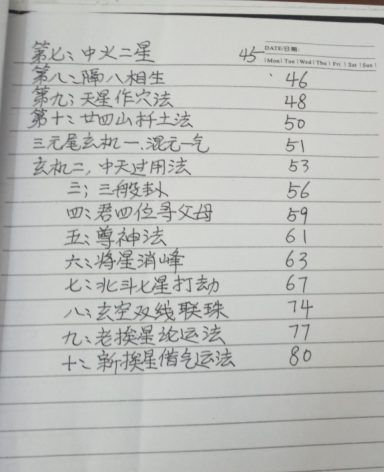 DATE/日期:
Mon | Tue | Wed | Thu | Fri | Sat | Sun
第七:中火二星 45
第八:隔八相生 46
第九:天星作穴法 48
第十:廿四山扦土法 50
三元尾玄机一.混元一气 51
玄机二,中天过用法 53
三;三般卦 56
四:君四位寻父母 59
五:尊神法 61
六:将星消峰 63
七:北斗七星打劫 67
八:玄空双线联珠 74
九:老挨星论运法 77
十:新挨星借气运法 80